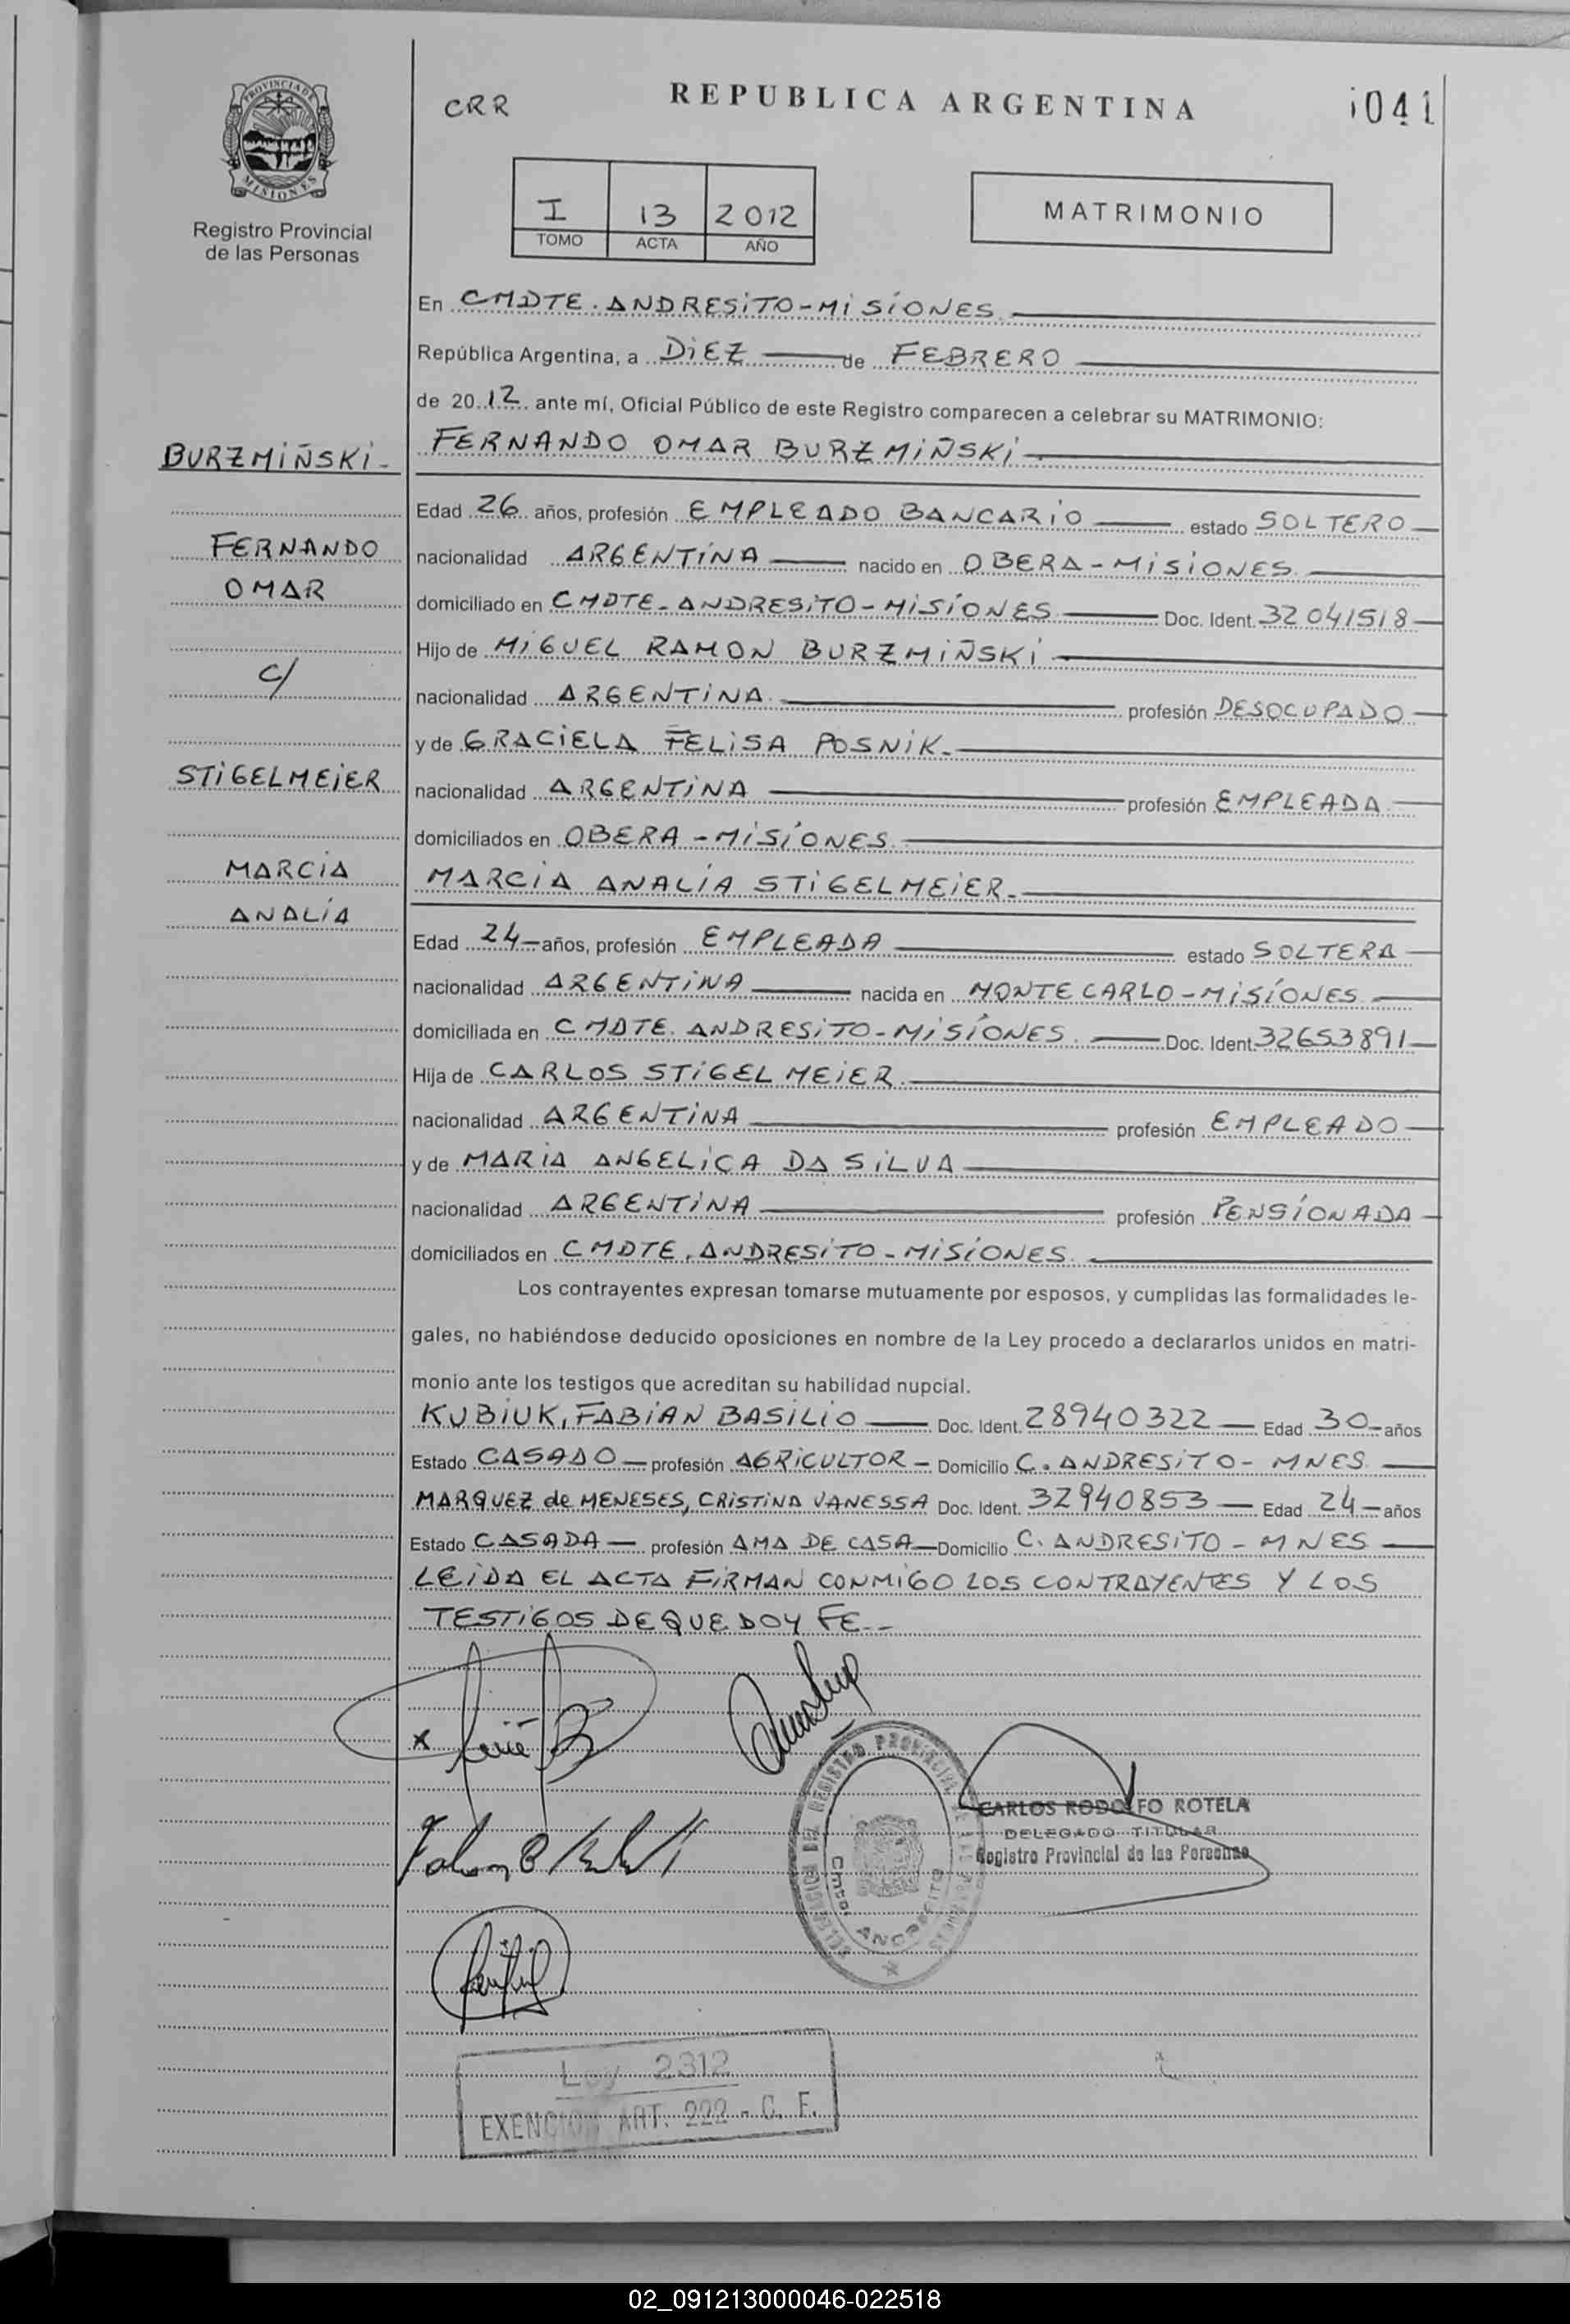 PROVINCIA DE
MISIONES
Registro Provincial
de las Personas
CRR
REPUBLICA ARGENTINA
041
I 13 2012
TOMO ACTA AÑO
MATRIMONIO
En CMDTE. ANDRESiTO-MiSiONES
República Argentina, a DiEZ de FEBRERO
de 2012 ante mí, Oficial Público de este Registro comparecen a celebrar su MATRIMONIO:
BURZMIÑSKI-
FERNANDO
OMAR
C/
STIGELMEIER
MARCIA
ANALÍA
FERNANDO OMAR BURZMIÑSKI
Edad 26 años, profesión EMPLEADO BANCARIO estado SOLTERO
nacionalidad ARGENTINA nacido en OBERA-MISIONES
domiciliado en CMDTE-ANDRESITO-MISIONES Doc. Ident. 32041518
Hijo de MIGUEL RAMON BURZMIÑSKI
nacionalidad ARGENTINA profesión DESOCUPADO
y de GRACIELA FELISA POSNIK.
nacionalidad ARGENTINA profesión EMPLEADA
domiciliados en OBERA-MISIONES
MARCIA ANALÍA STIGELMEIER.
Edad 24 años, profesión EMPLEADA estado SOLTERA
nacionalidad ARGENTINA nacida en MONTECARLO-MISIONES
domiciliada en CMDTE. ANDRESITO-MISIONES. Doc. Ident. 32653891
Hija de CARLOS STIGELMEIER
nacionalidad ARGENTINA profesión EMPLEADO
y de MARIA ANGELICA DA SILVA
nacionalidad ARGENTINA profesión PENSIONADA
domiciliados en CMDTE. ANDRESITO-MISIONES.
Los contrayentes expresan tomarse mutuamente por esposos, y cumplidas las formalidades le-
gales, no habiéndose deducido oposiciones en nombre de la Ley procedo a declararlos unidos en matri-
monio ante los testigos que acreditan su habilidad nupcial.
KUBIUK, FABIAN BASILIO Doc. Ident. 28940322 Edad 30 años
Estado CASADO profesión AGRICULTOR Domicilio C. ANDRESITO- MNES
MARQUEZ de MENESES, CRISTINA VANESSA Doc. Ident. 32940853 Edad 24 años
Estado CASADA profesión AMA DE CASA Domicilio C. ANDRESITO - MNES
LEIDA EL ACTA FIRMAN CONMIGO LOS CONTRAYENTES Y LOS
TESTIGOS DE QUE DOY FE--
x
DELEGACION DEL REGISTRO PROVINCIAL DE LAS PERSONAS
Cmte. ANDRESITO
CARLOS RODOLFO ROTELA
DELEGADO TITULAR
Registro Provincial de las Personas
Ley 2312
EXENCION ART. 222 - C. F.
02_091213000046-022518